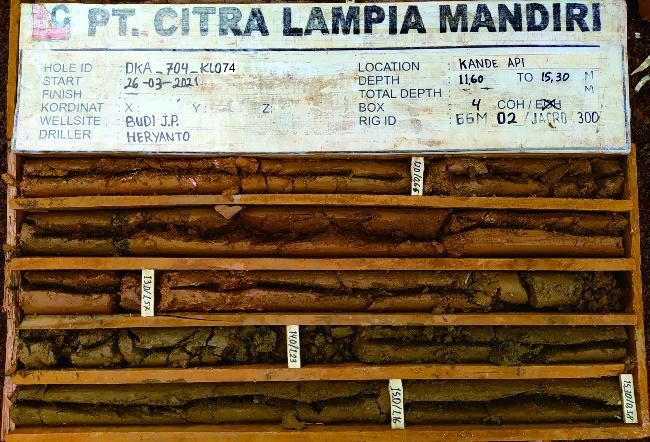 PT. CITRA LAMPIA MANDIRI
HOLE ID : DKA_704_KL074
START : 26-03-2021
FINISH :
KORDINAT X : Y : Z:
WELLSITE : BUDI J.P.
DRILLER : HERYANTO
LOCATION : KANDE API
DEPTH : 11,60 TO 15,30 M
TOTAL DEPTH : M
BOX : 4 COH /
RIG ID : 02 /JACRO 300
13.0/1.57
14.0/1.23
15.0/1.16